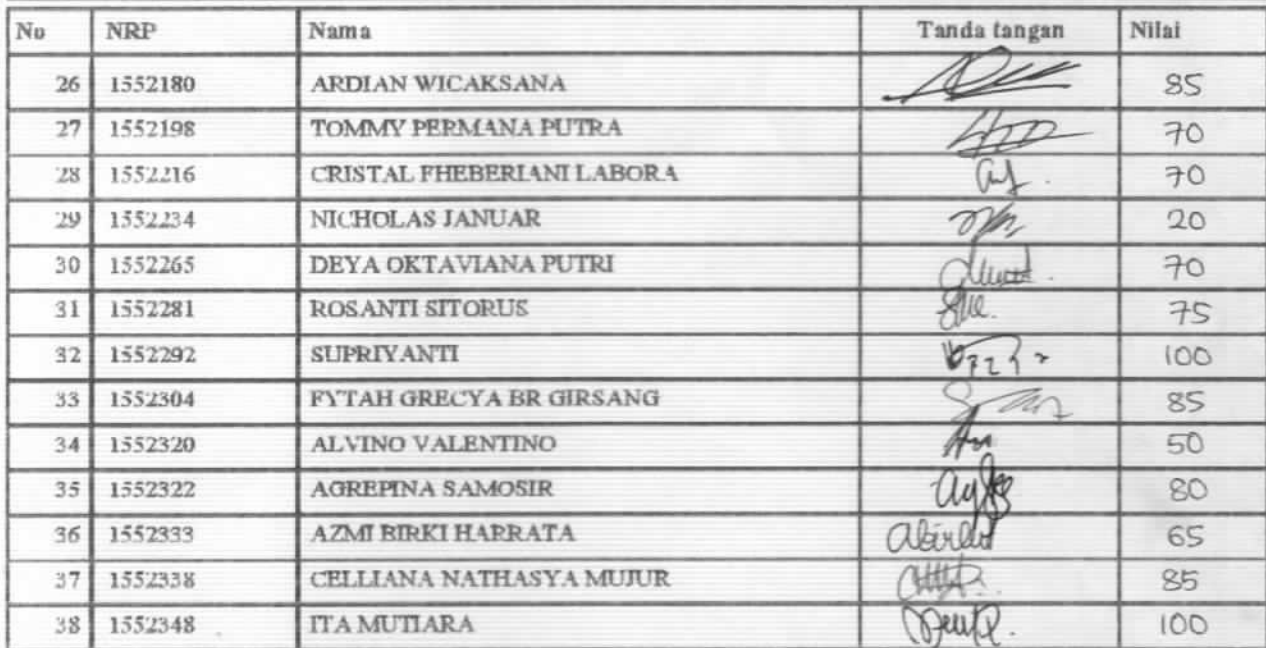 No NRP Nama Tanda tangan Nilai
26 1552180 ARDIAN WICAKSANA 85
27 1552198 TOMMY PERMANA PUTRA 70
28 1552216 CRISTAL FHEBERIANI LABORA 70
29 1552234 NICHOLAS JANUAR 20
30 1552265 DEYA OKTAVIANA PUTRI 70
31 1552281 ROSANTI SITORUS 75
32 1552292 SUPRIYANTI 100
33 1552304 FYTAH GRECYA BR GIRSANG 85
34 1552320 ALVINO VALENTINO 50
35 1552322 AGREPINA SAMOSIR 80
36 1552333 AZMI BIRKI HARRATA 65
37 1552338 CELLIANA NATHASYA MUJUR 85
38 1552348 ITA MUTIARA 100